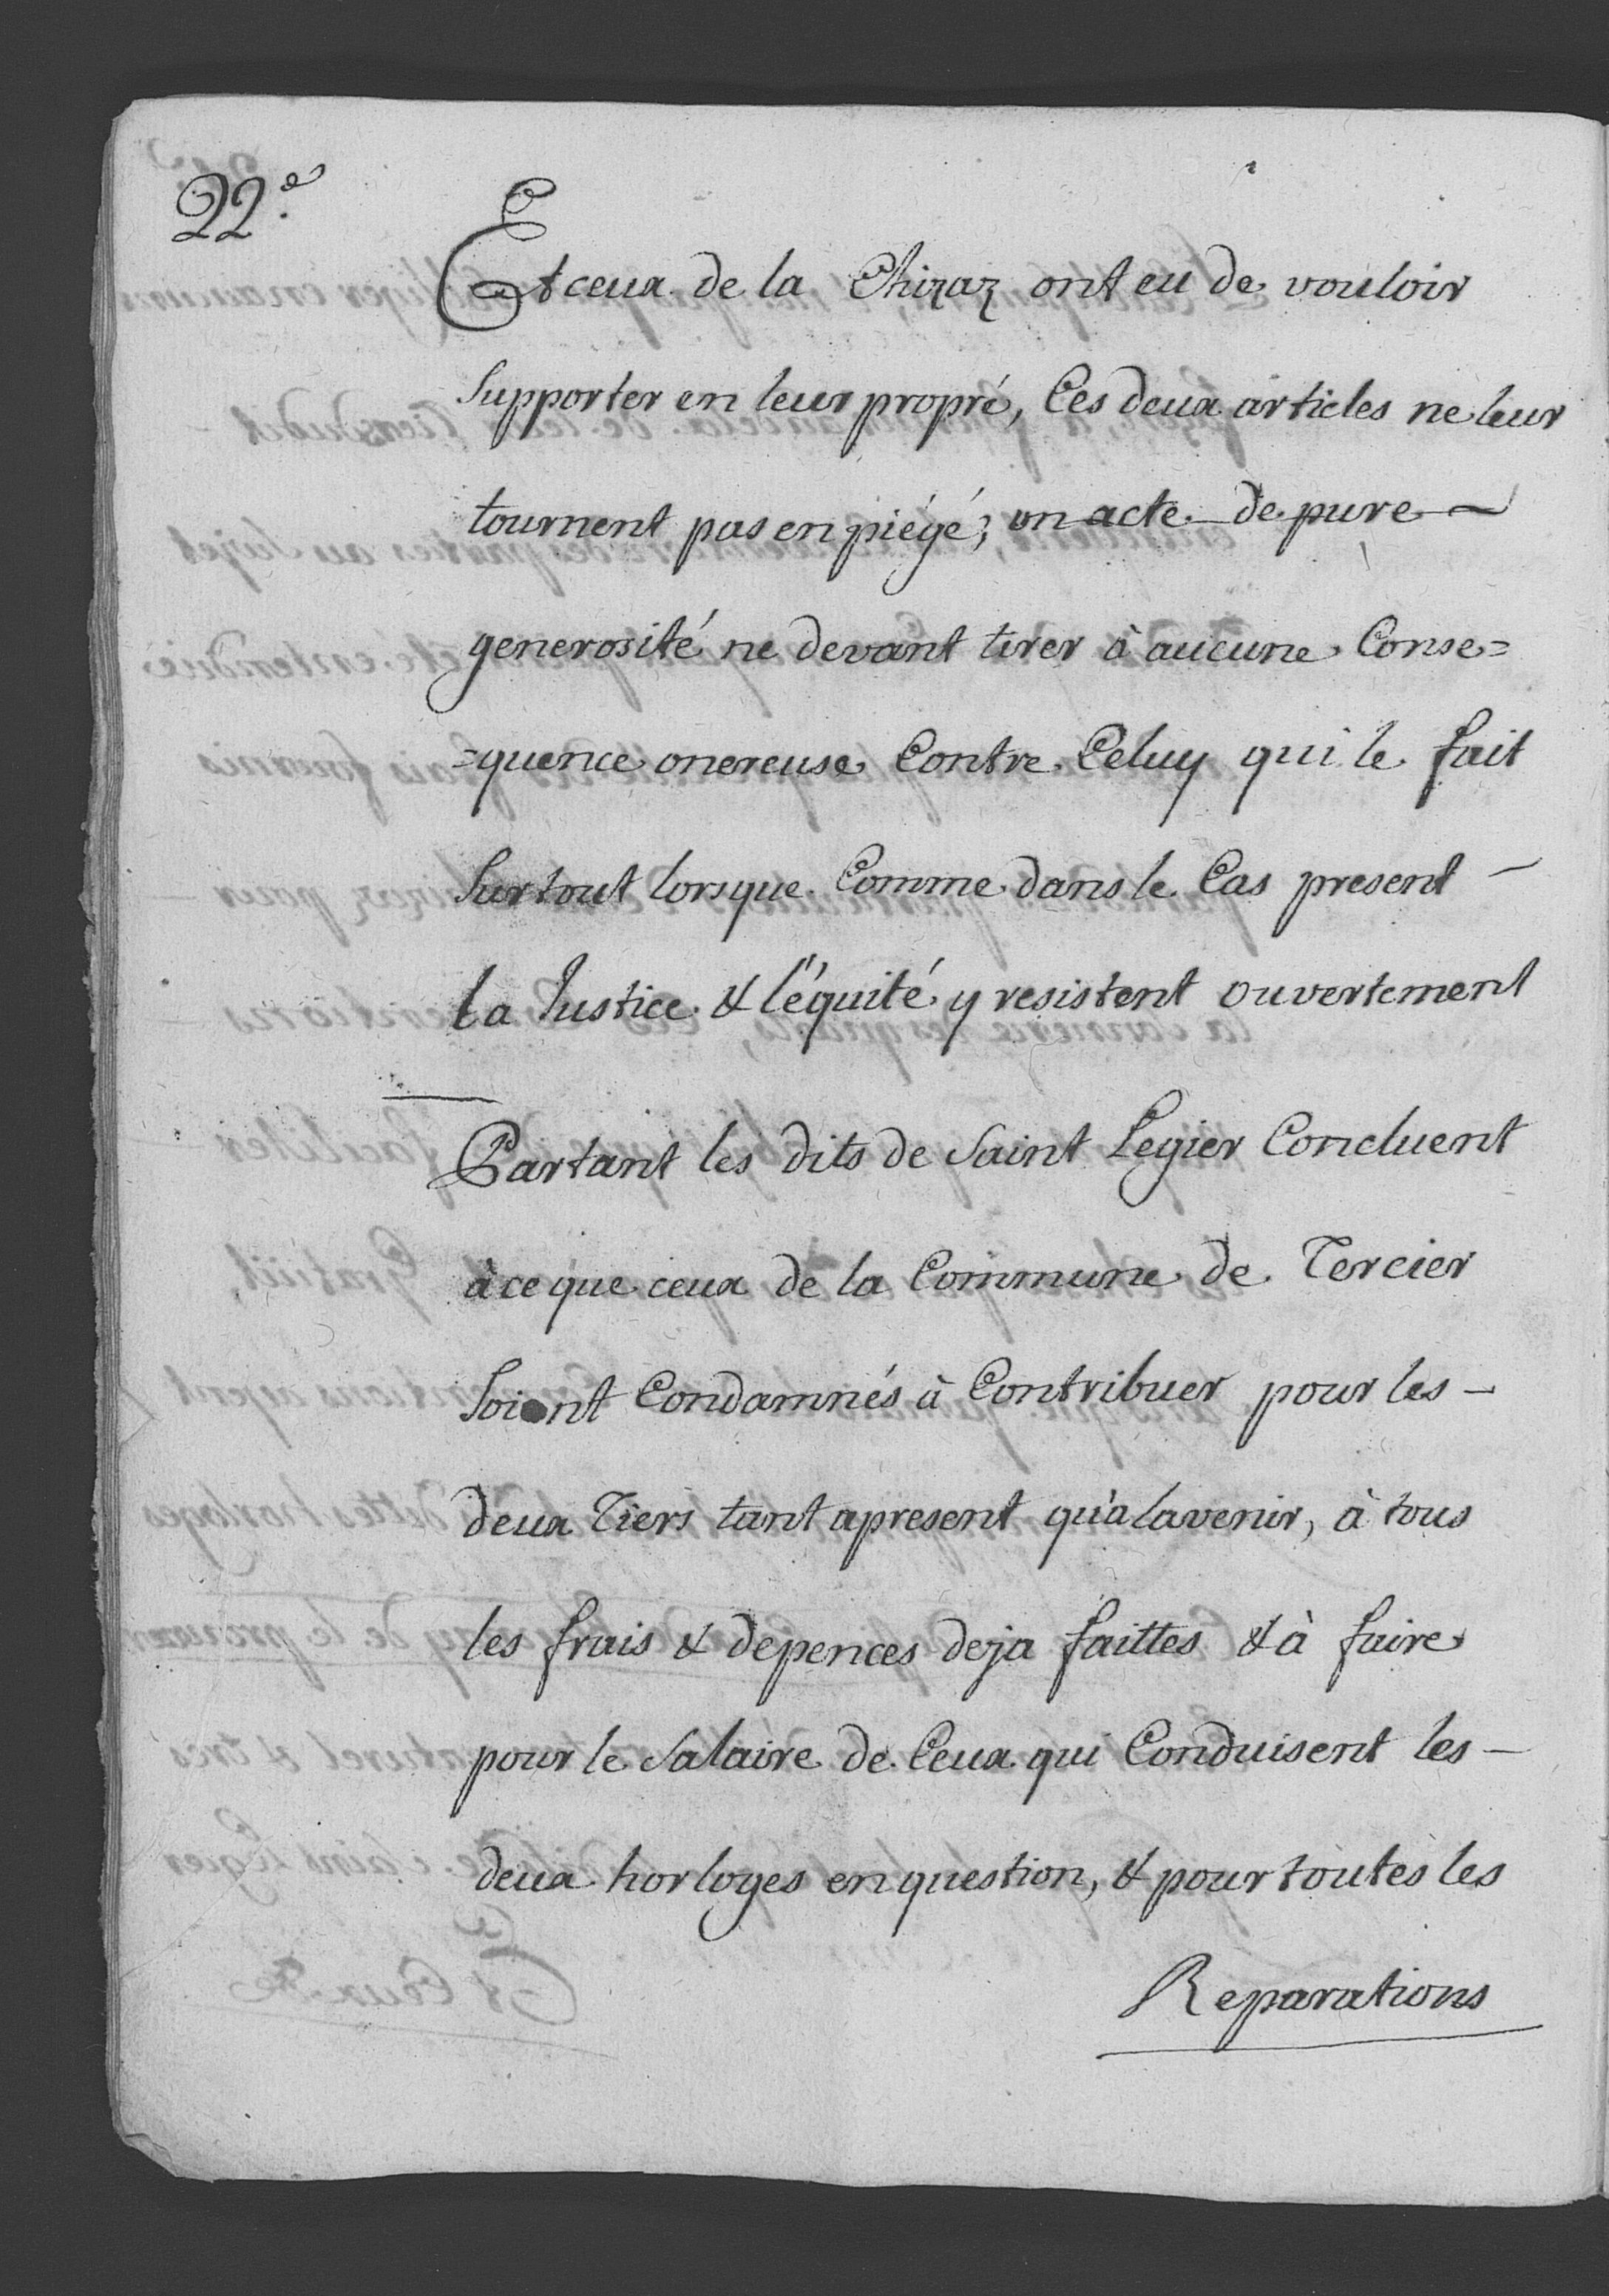 22e.
Et ceux de la Chizaz ont eu de vouloir
Supporter en leur propré, Ces deux articles ne leur
tournent pas en piégé; un acte de pure —
generosité ne devant tirer à aucune Conse=
=quence onereuse Contre Celuy qui le fait
Surtout lorsque Comme dans le Cas present —
la Justice & l'équité y resistent ouvertement
Partant les dits de Saint Legier Concluent
à ce que ceux de la Commune de Tercier
Soient Condamnés à Contribuer pour les —
deux Tiers tant apresent qu'a lavenir, à tous
les frais & depences deja faittes & à faire
pour le Salaire de Ceux qui Conduisent les —
deux horloges en question, & pour toutes les
Reparations